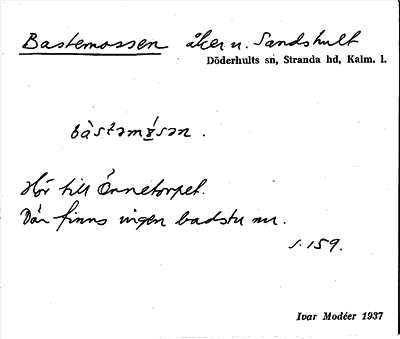 Bastemossen åker u. Sandshult
Döderhults sn, Stranda hd, Kalm. l.
bàstəmɷ́sən.
Hör till Önnetorpet.
Där finns ingen badstu nu.
s. 159.
Ivar Modéer 1937